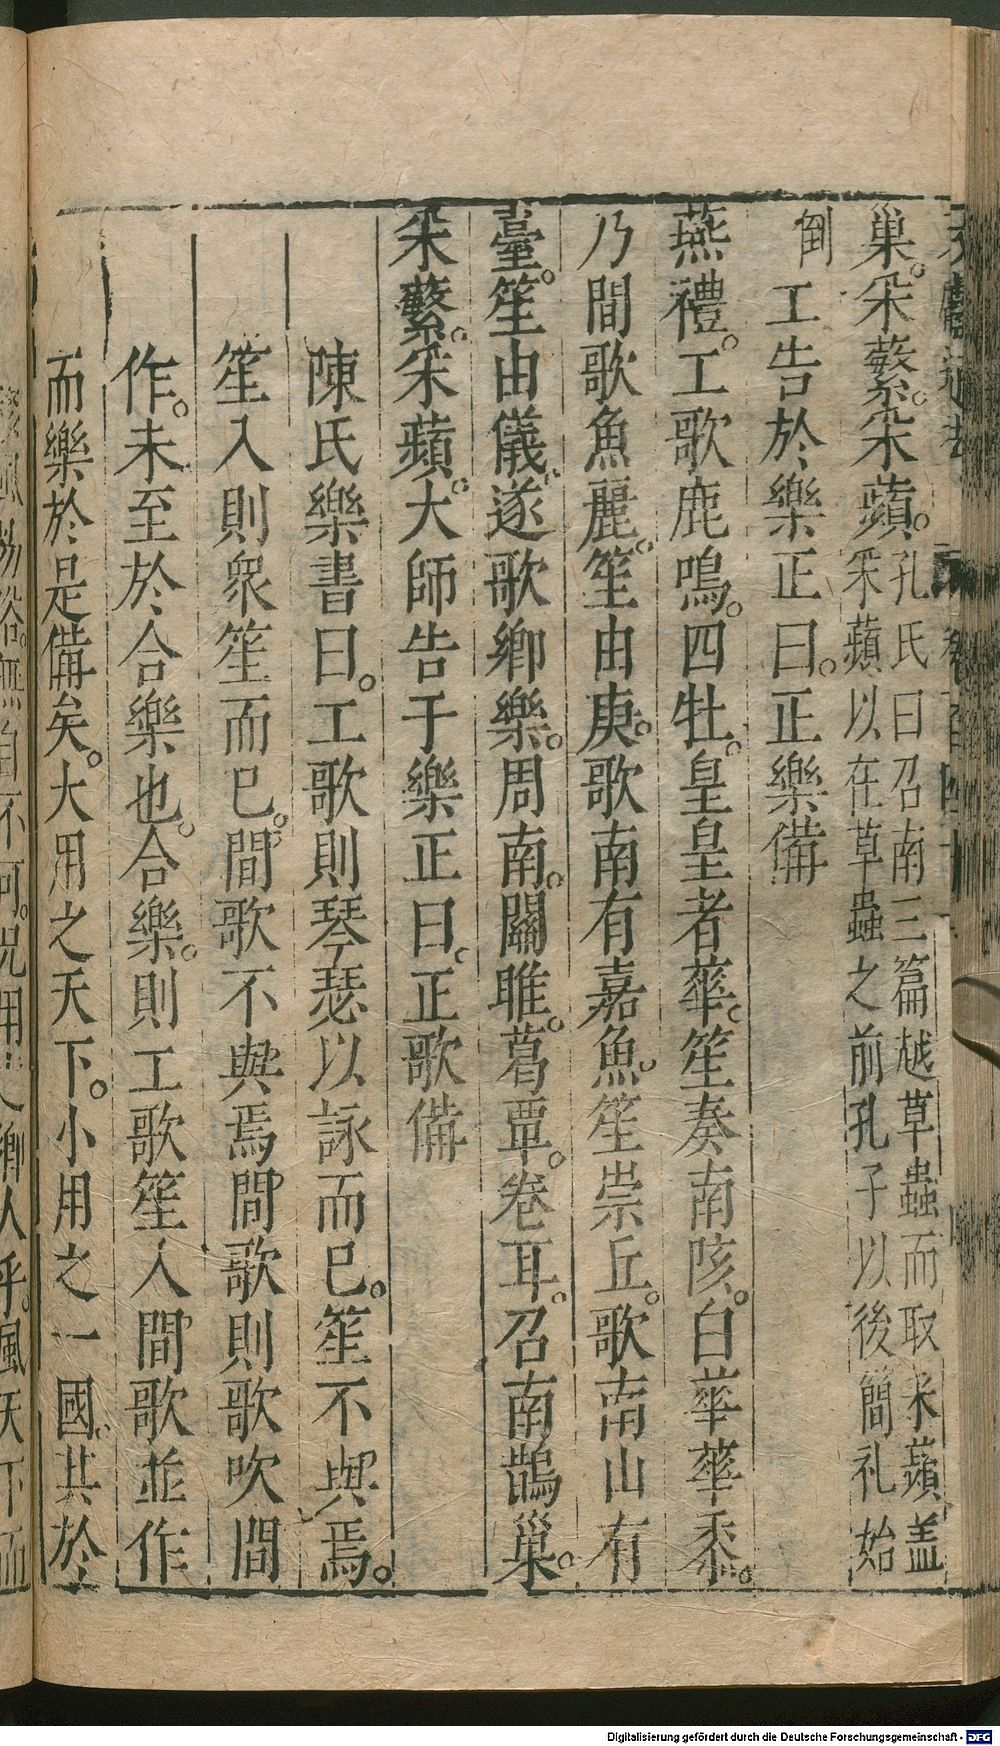 巢。采蘩。采蘋。孔氏曰召南三篇越草蟲而取采蘋盖
采蘋以在草蟲之前孔子以後簡札始
倒
工告於樂正曰。正樂備
燕禮。工歌鹿鳴。四牡。皇皇者華。笙奏南陔。白華華黍。
乃間歌魚麗。笙由庚。歌南有嘉魚。笙崇丘。歌南山有
臺。笙由儀。遂歌鄉樂。周南。關雎。葛覃。卷耳。召南鵲巢。
采蘩。采蘋。大師告于樂正曰。正歌備
陳氏樂書曰。工歌則琴瑟以詠而已。笙不與焉。
笙入則衆笙而已。間歌不與焉間歌則歌吹間
作。未至於合樂也。合樂。則工歌笙入間歌並作
而樂於是備矣。大用之天下。小用之一國。其於
Digitalisierung gefördert durch die Deutsche Forschungsgemeinschaft - DFG